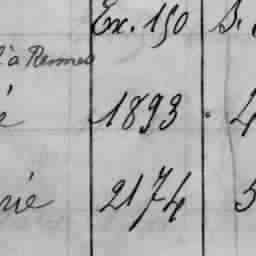 Ex. 150 S.
à Rennes
é 1893. 4
rié 2174 5